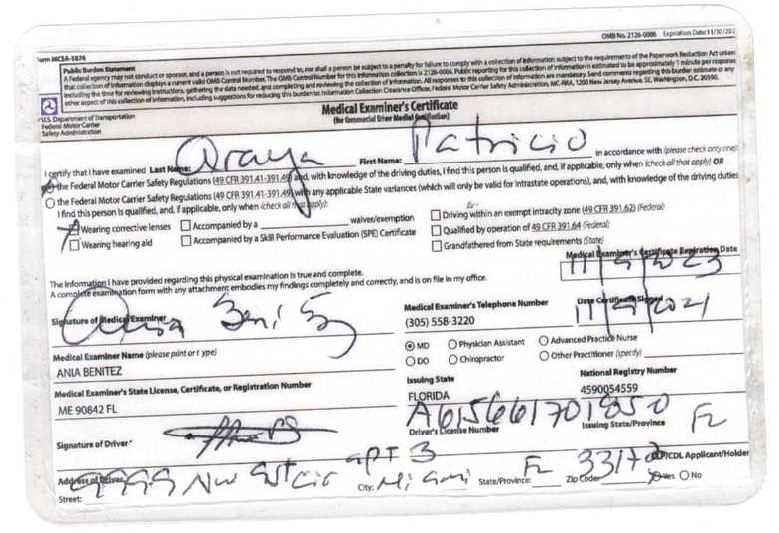 Form MCSA-5876
OMB No. 2126-0006 Expiration Date: 11/30/202
Public Burden Statement
A Federal agency may not conduct or sponsor, and a person is not required to respond to, nor shall a person be subject to a penalty for failure to comply with a collection of information subject to the requirements of the Paperwork Reduction Act unless
that collection of information displays a current valid OMB Control Number. The OMB Control Number for this information collection is 2126-0006. Public reporting for this collection of information is estimated to be approximately 1 minute per response,
including the time for reviewing instructions, gathering the data needed, and completing and reviewing the collection of information. All responses to this collection of information are mandatory. Send comments regarding this burden estimate or any
other aspect of this collection of information, including suggestions for reducing this burden to: Information Collection Clearance Officer, Federal Motor Carrier Safety Administration, MC-RRA, 1200 New Jersey Avenue, SE, Washington, D.C. 20590.
U.S. Department of Transportation
Federal Motor Carrier
Safety Administration
Medical Examiner's Certificate
(for Commercial Driver Medical Certification)
I certify that I have examined Last Name: Araya First Name: Patricio in accordance with (please check only one)
the Federal Motor Carrier Safety Regulations (49 CFR 391.41-391.49) and, with knowledge of the driving duties, I find this person is qualified, and, if applicable, only when (check all that apply) OR
the Federal Motor Carrier Safety Regulations (49 CFR 391.41-391.49) with any applicable State variances (which will only be valid for intrastate operations), and, with knowledge of the driving duties
I find this person is qualified, and, if applicable, only when (check all that apply):
Wearing corrective lenses Accompanied by a waiver/exemption Driving within an exempt intracity zone (49 CFR 391.62) (Federal)
Wearing hearing aid Accompanied by a Skill Performance Evaluation (SPE) Certificate Qualified by operation of 49 CFR 391.64 (Federal)
Grandfathered from State requirements (State)
The information I have provided regarding this physical examination is true and complete.
A complete examination form with any attachment embodies my findings completely and correctly, and is on file in my office.
Medical Examiner's Certificate Expiration Date
11/9/2023
Signature of Medical Examiner
Medical Examiner's Telephone Number
(305) 558-3220
Date Certificate Signed
11/9/2021
Medical Examiner Name (please print or type)
ANIA BENITEZ
MD Physician Assistant Advanced Practice Nurse
DO Chiropractor Other Practitioner (specify)
Medical Examiner's State License, Certificate, or Registration Number
ME 90842 FL
Issuing State
FLORIDA
National Registry Number
4590054559
Signature of Driver
Driver's License Number
Issuing State/Province
FL
Address of Driver
Street: apt 3 City: Miami State/Province: FL Zip Code:
CLP/CDL Applicant/Holder
Yes No